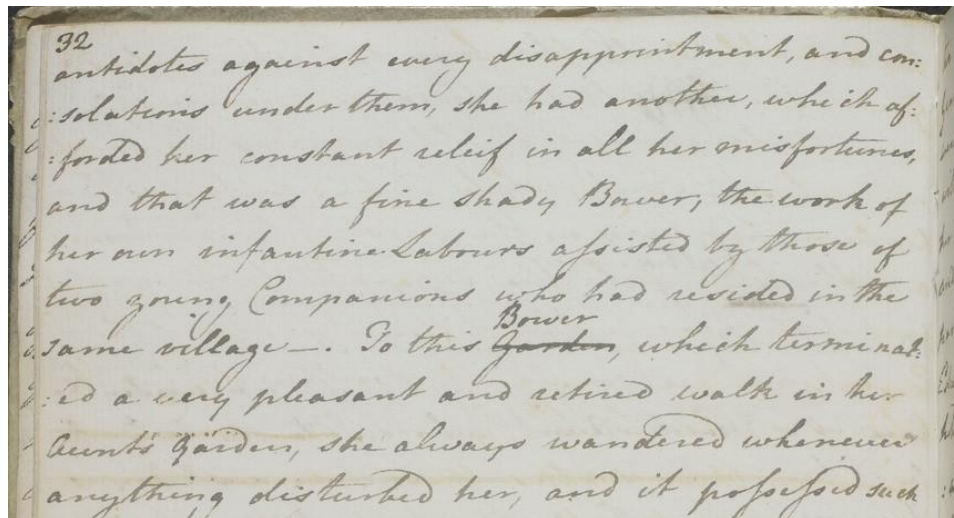 32
antidotes against every disappointment, and con:
:solations under them, she had another, which af:
:forded her constant releif in all her misfortunes,
and that was a fine shady Bower, the work of
her own infantine Labours assisted by those of
two young Companions who had resided in the
Bower
same village —. To this Garden, which terminat:
:ed a very pleasant and retired walk in her
Aunt's Garden, she always wandered whenever
anything disturbed her, and it possessed such